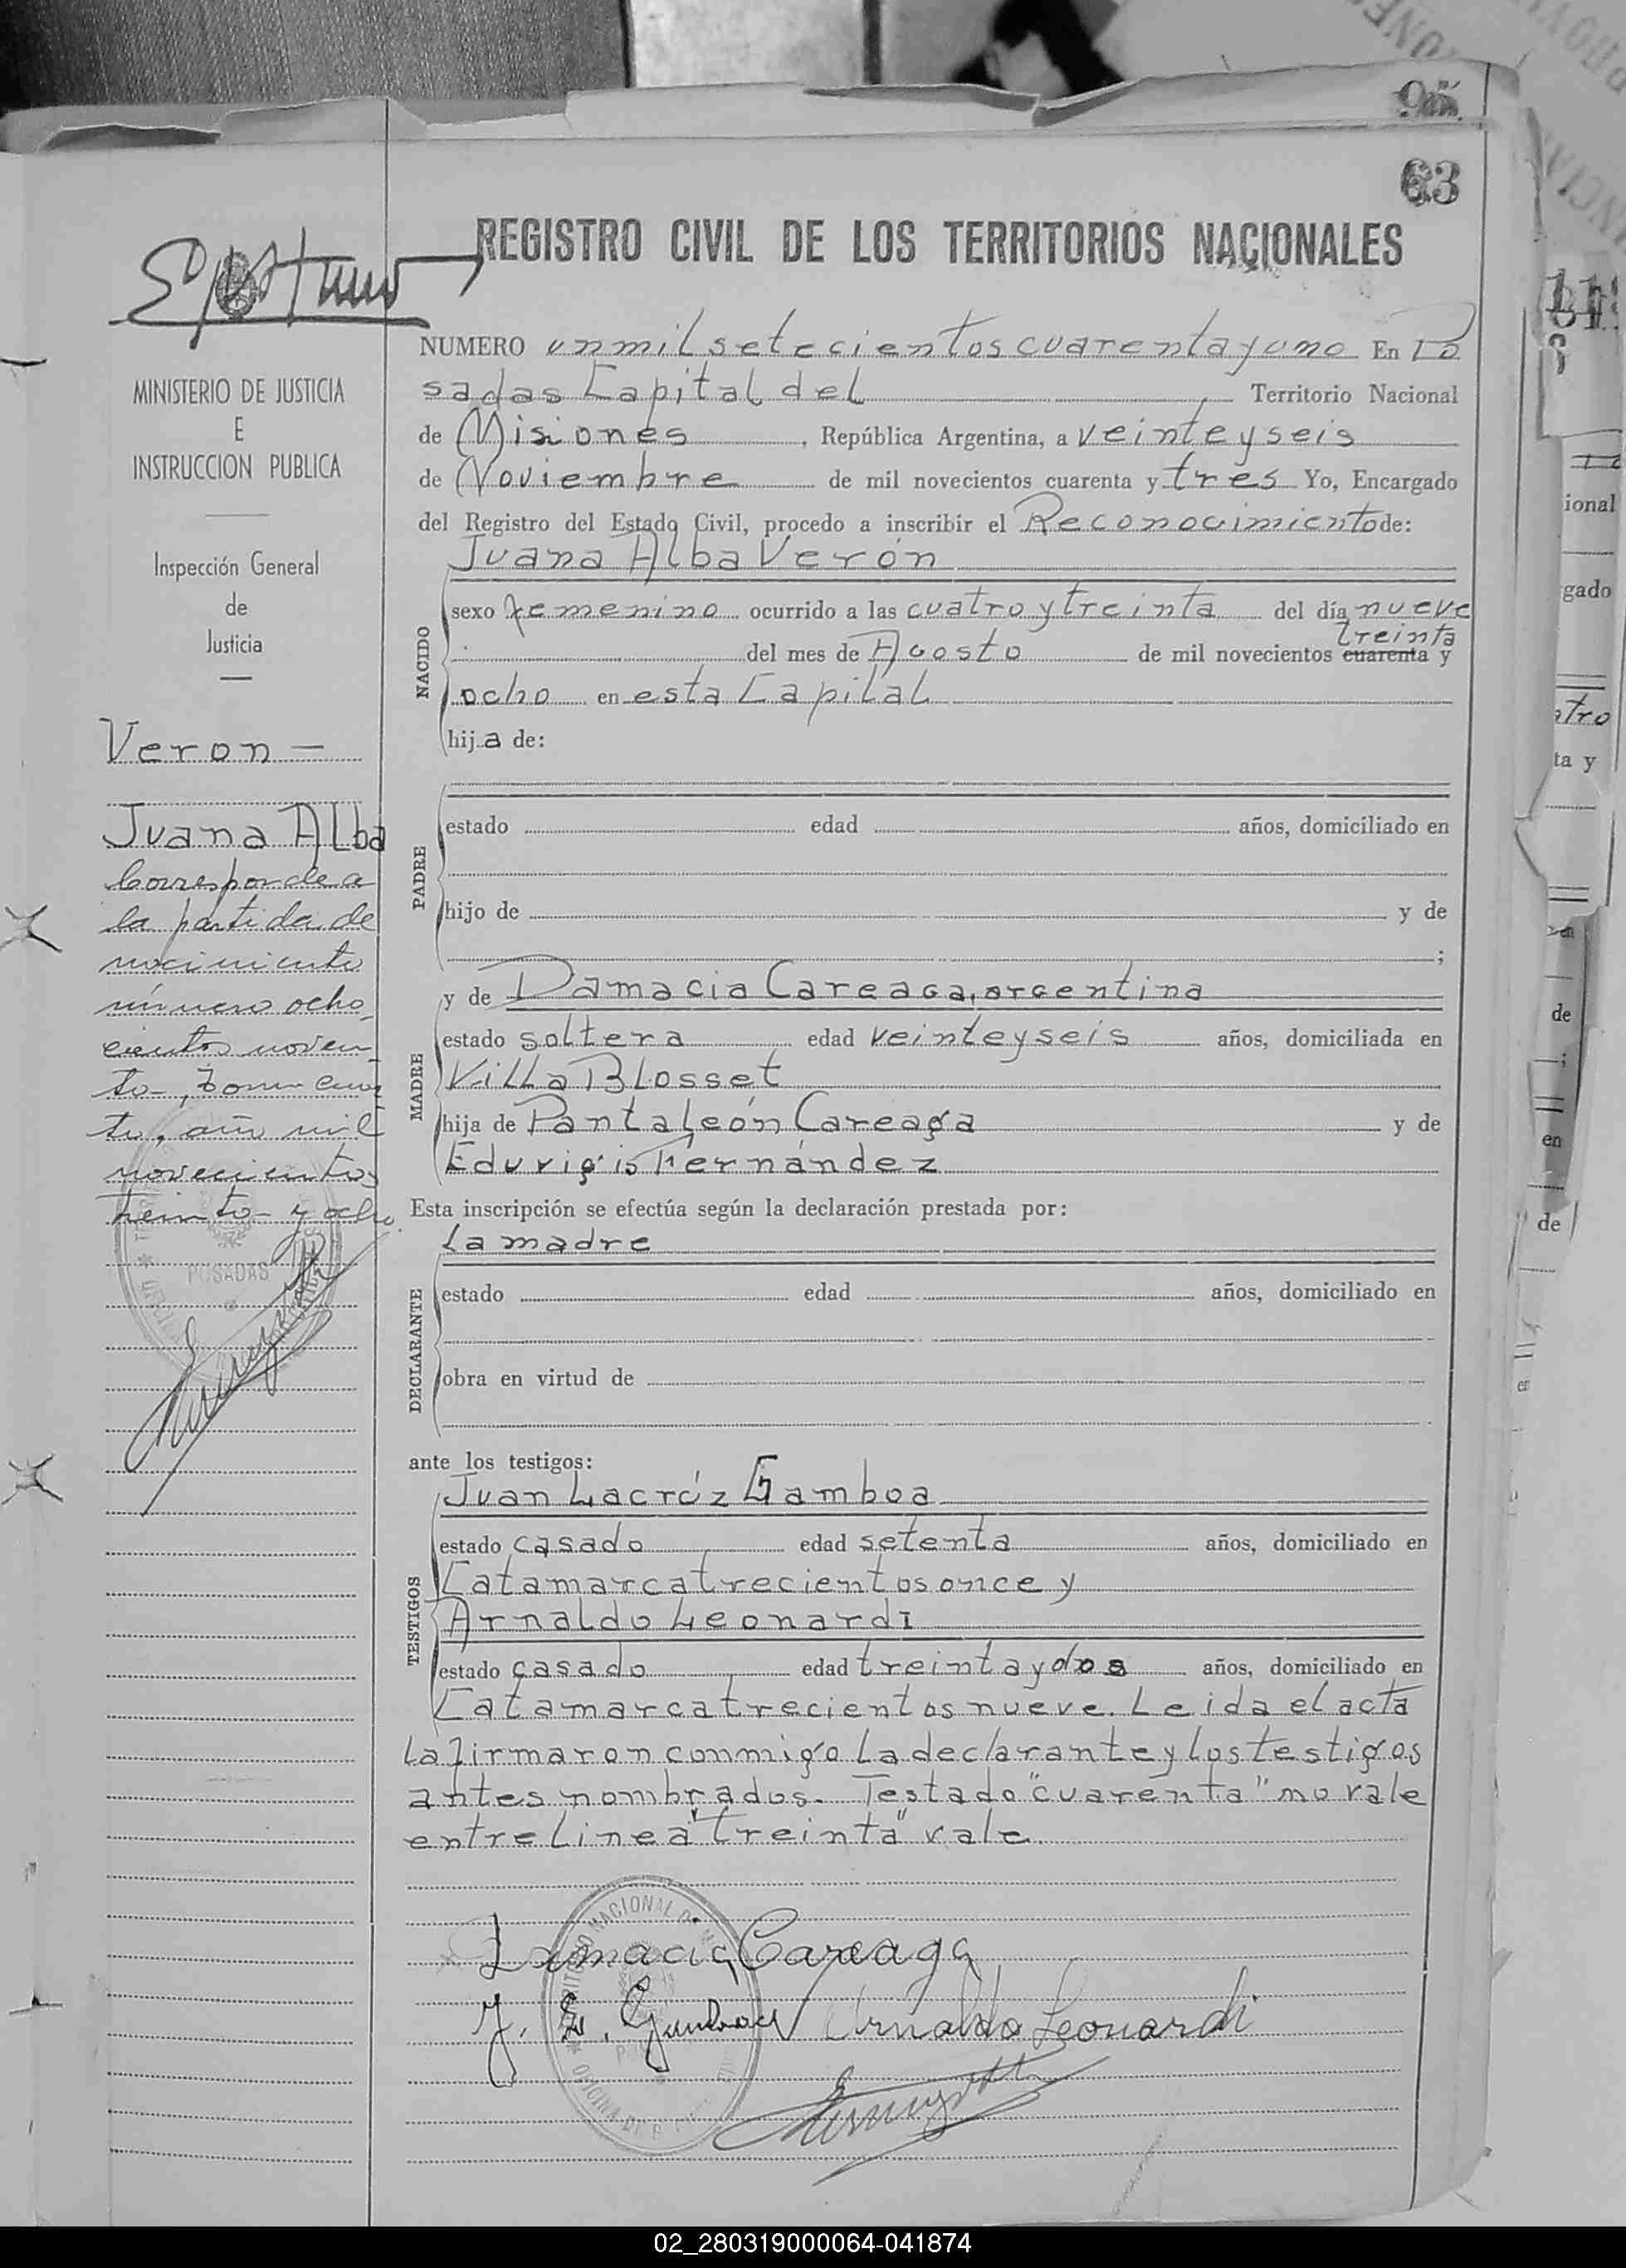 95
63
REGISTRO CIVIL DE LOS TERRITORIOS NACIONALES
MINISTERIO DE JUSTICIA
E
INSTRUCCION PUBLICA
Inspección General
de
Justicia
Veron —
Juana Alba
Corresponde a
la partida de
nacimiento
número ocho
cientos noven
ta, tomo cuar
to, año mil
novecientos
treinta y ocho.
POSADAS
NUMERO un mil setecientos cuarenta y uno En Po
sadas Capital del Territorio Nacional
de Misiones, República Argentina, a veinte y seis
de Noviembre de mil novecientos cuarenta y tres Yo, Encargado
del Registro del Estado Civil, procedo a inscribir el Reconocimiento de:
Juana Alba Verón
NACIDO
sexo femenino ocurrido a las cuatro y treinta del día nueve
treinta
del mes de Agosto de mil novecientos cuarenta y
ocho en esta Capital
hija de:
PADRE
estado edad años, domiciliado en
hijo de y de
;
MADRE
y de Damacia Careaga, argentina
estado soltera edad veinte y seis años, domiciliada en
Villa Blosset
hija de Pantaleón Careaga y de
Eduvigis Fernández
Esta inscripción se efectúa según la declaración prestada por:
La madre
DECLARANTE
estado edad años, domiciliado en
obra en virtud de
ante los testigos:
TESTIGOS
Juan Lacróz Gamboa
estado casado edad setenta años, domiciliado en
Catamarca trecientos once y
Arnaldo Leonardi
estado casado edad treinta y dos años, domiciliado en
Catamarca trecientos nueve. Leida el acta
la firmaron conmigo la declarante y los testigos
antes nombrados. Testado "cuarenta" no vale
entre linea "treinta" vale
Damacia Careaga
J. L. Gamboa Arnaldo Leonardi
02_280319000064-041874